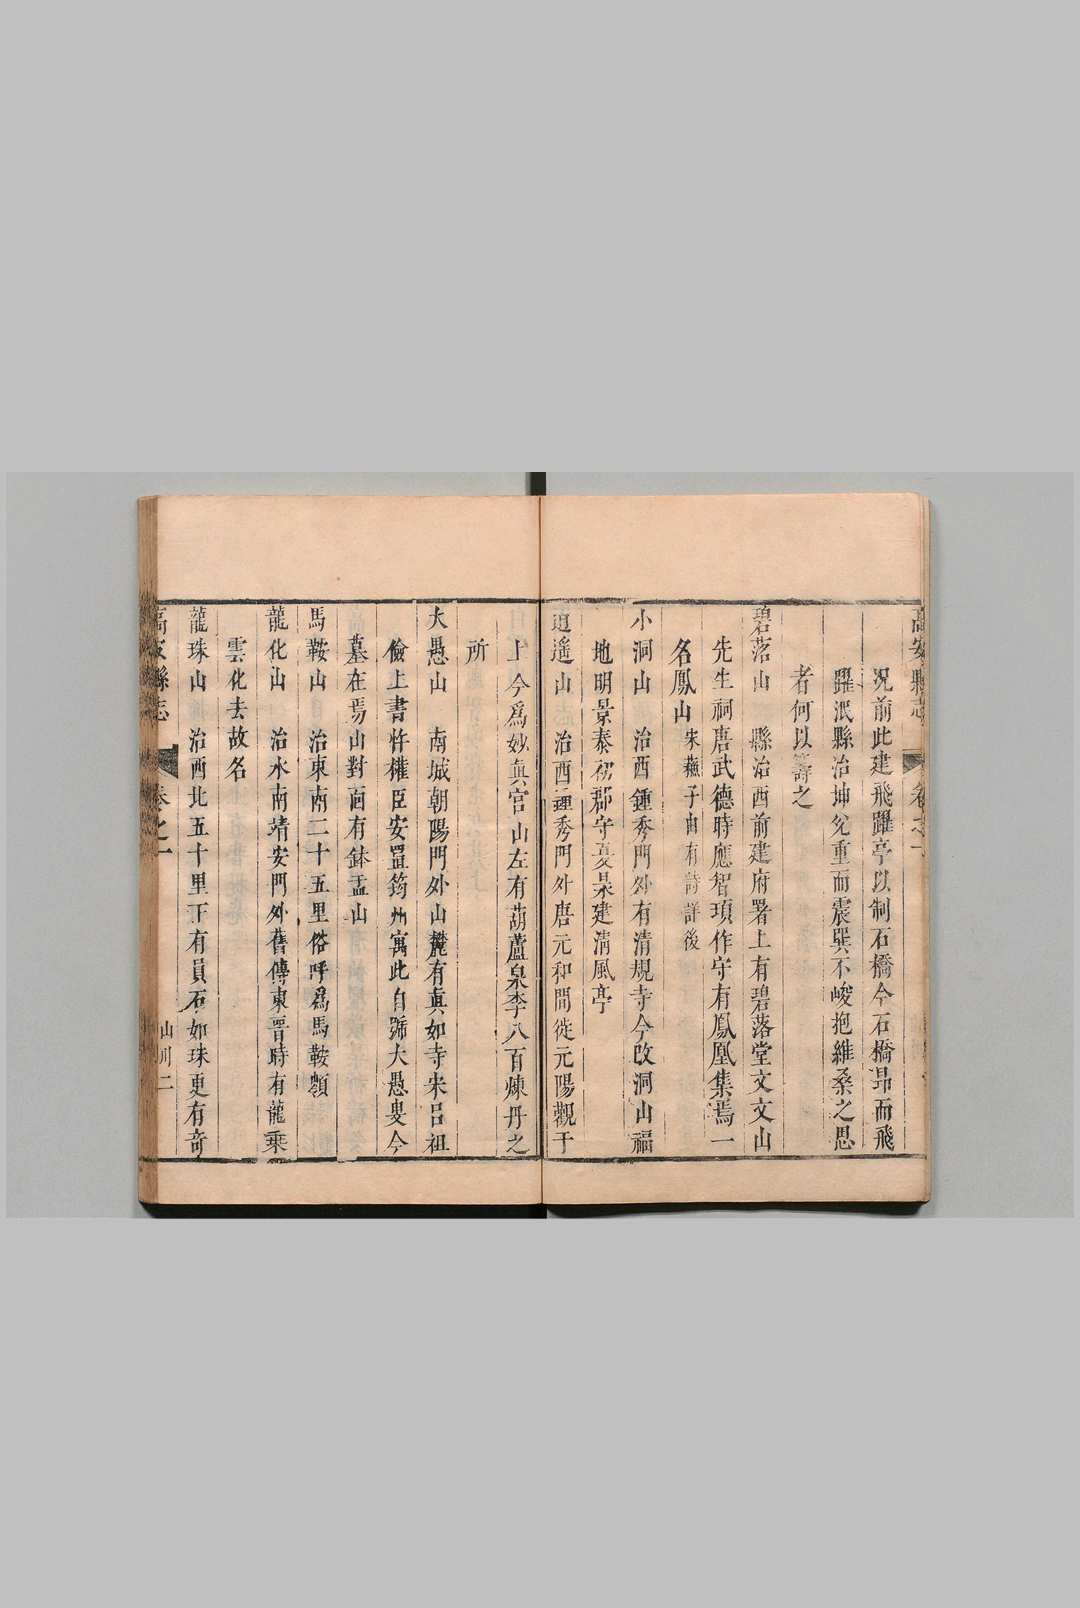 高安縣志
卷之一
況前此建飛躍亭以制石橋今石橋昻而飛
躍泯縣治坤兊重而震巽不峻抱維桑之思
者何以籌之
碧落山 縣治西前建府署上有碧落堂文文山
先生祠唐武德時應智頊作守有鳳凰集焉一
名鳳山 宋蘓子由有詩詳後
小洞山 治西鍾秀門外有清規寺今改洞山福
地明景泰初郡守夏杲建淸風亭
逍遙山 治西鍾秀門外唐元和間徙元陽觀于
上今爲妙眞宫山左有葫蘆泉李八百煉丹之
所
大愚山 南城朝陽門外山麓有眞如寺宋呂祖
儉上書忤權臣安置筠州寓此自號大愚叟今
墓在焉山對面有鉢盂山
馬鞍山 治東南二十五里俗呼爲馬鞍嶺
龍化山 治水南靖安門外舊傳東晋時有龍乗
雲化去故名
龍珠山 治西北五十里下有員石如珠更有奇
高安縣志
卷之一
山川二